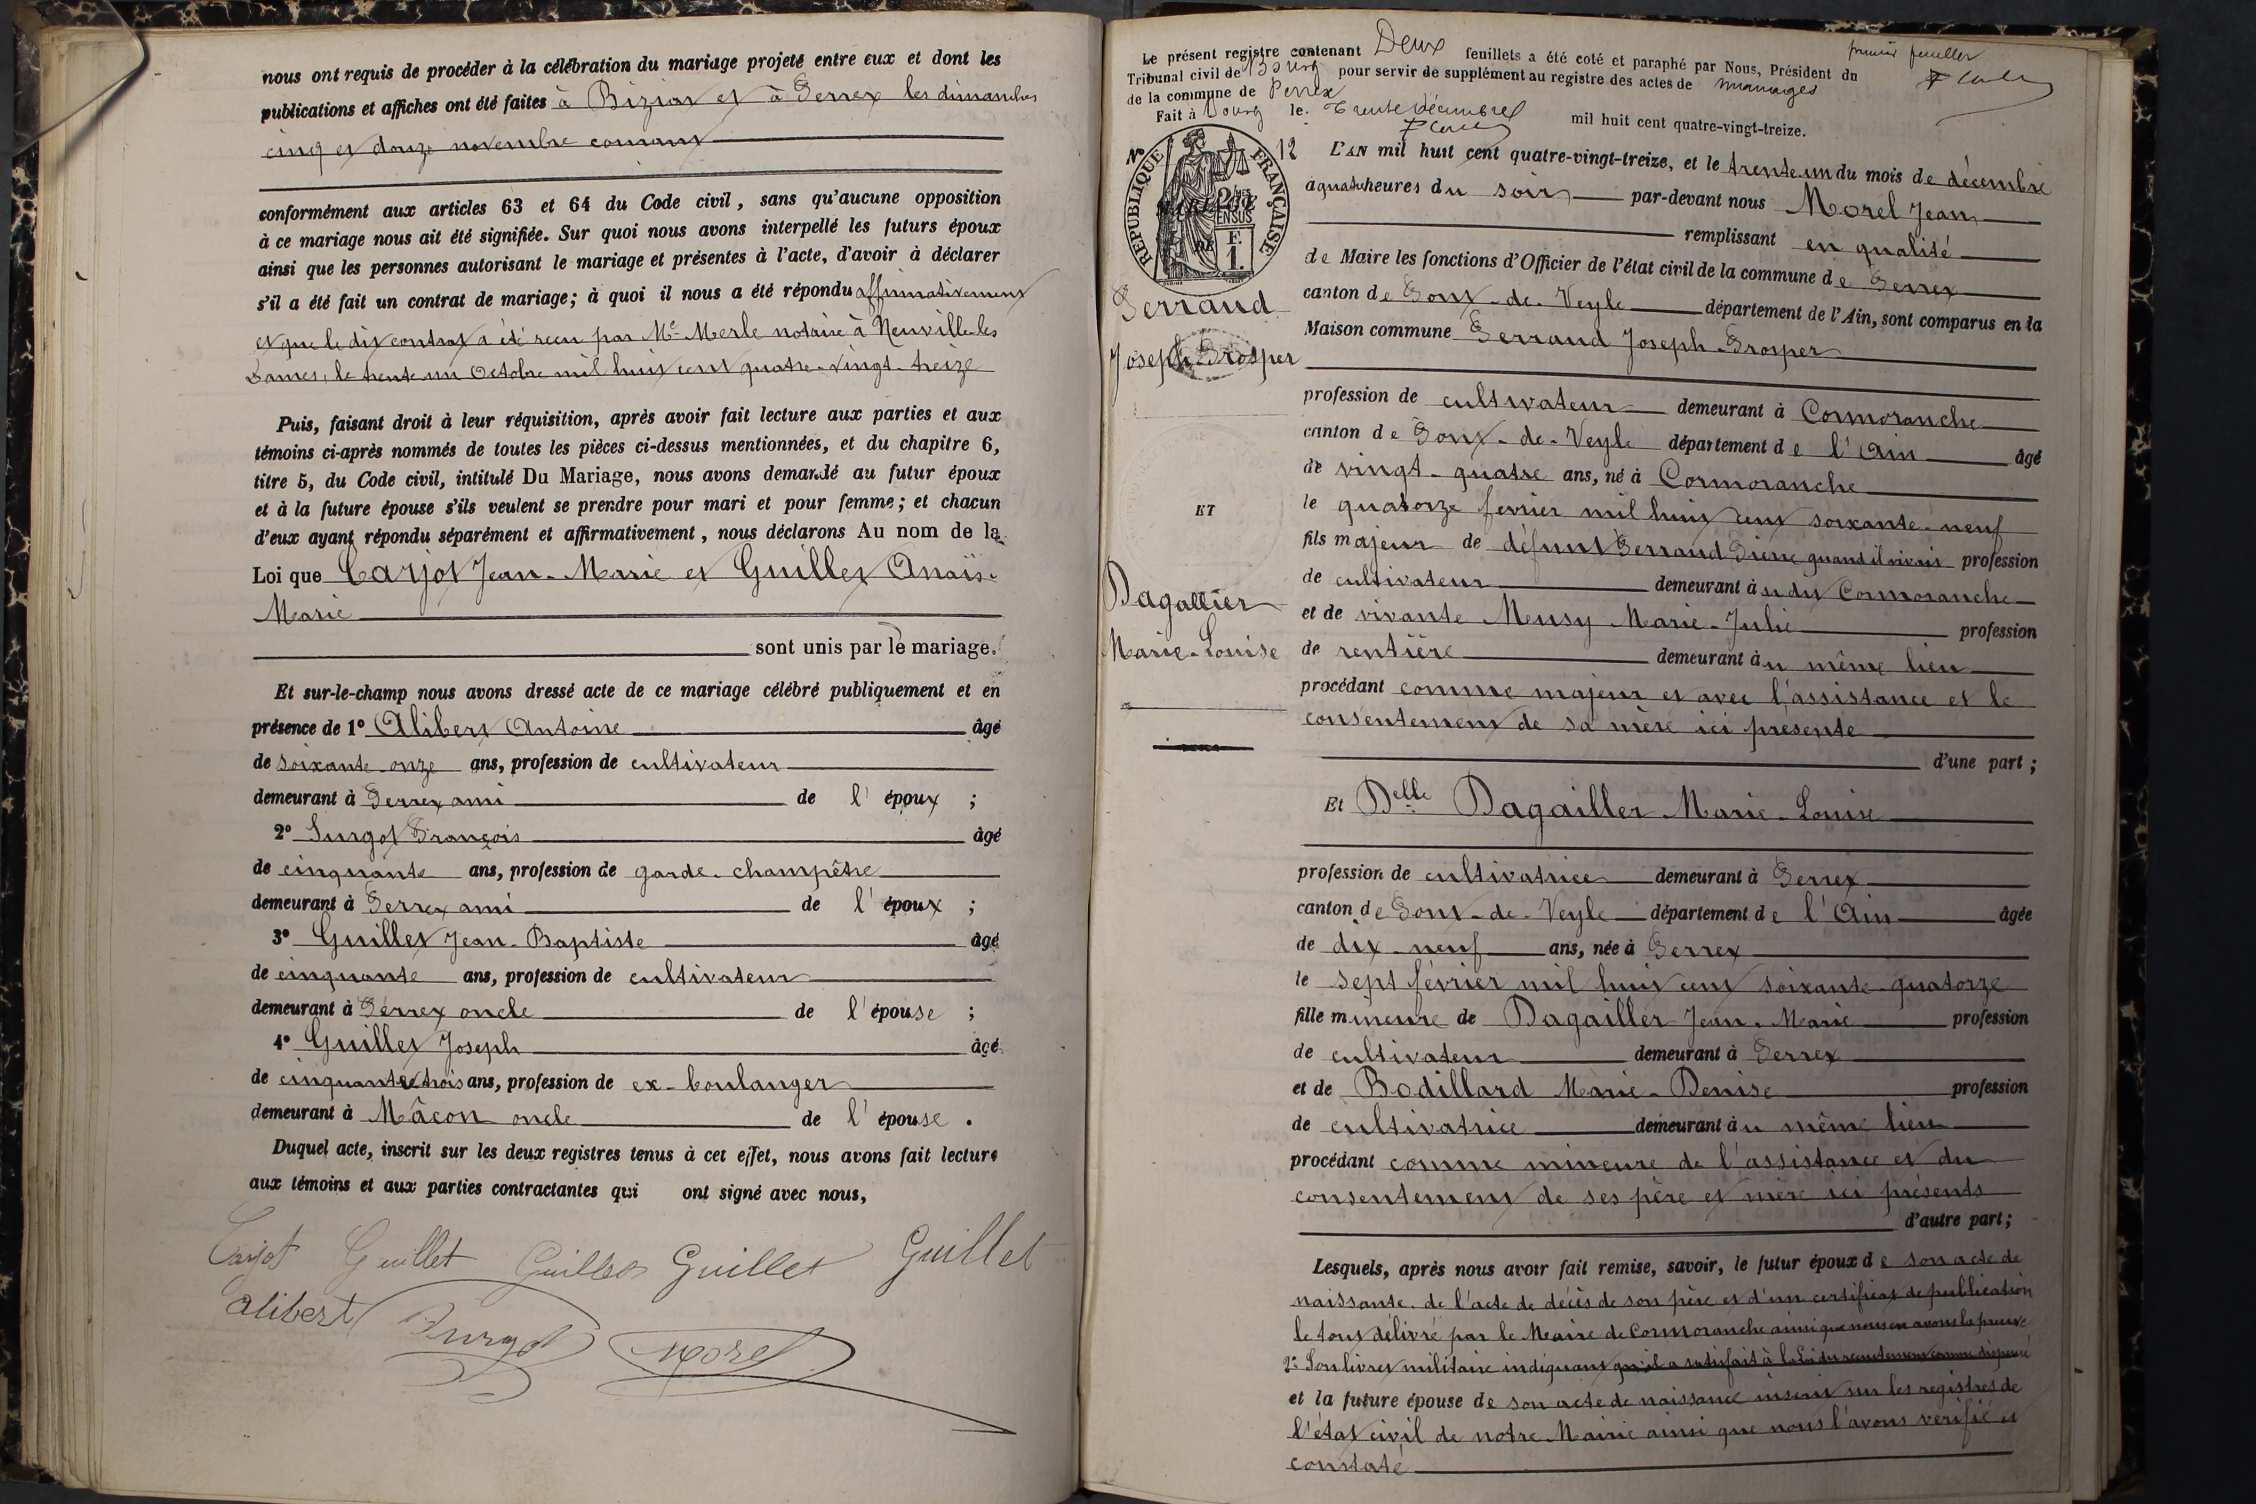 nous ont requis de procéder à la célébration du mariage projeté entre eux et dont les
publications et affiches ont été faites à Biziat et à Perrex les dimanches
cinq et douze novembre courant
conformément aux articles 63 et 64 du Code civil, sans qu'aucune opposition
à ce mariage nous ait été signifiée. Sur quoi nous avons interpellé les futurs époux
ainsi que les personnes autorisant le mariage et présentes à l'acte, d'avoir à déclarer
s'il a été fait un contrat de mariage; à quoi il nous a été répondu affirmativement
et que le dit contrat a été reçu par Me Merle notaire à Neuville-les
Dames, le trente un Octobre mil huit cent quatre-vingt-treize
Puis, faisant droit à leur réquisition, après avoir fait lecture aux parties et aux
témoins ci-après nommés de toutes les pièces ci-dessus mentionnées, et du chapitre 6,
titre 5, du Code civil, intitulé Du Mariage, nous avons demandé au futur époux
et à la future épouse s'ils veulent se prendre pour mari et pour femme; et chacun
d'eux ayant répondu séparément et affirmativement, nous déclarons Au nom de la
Loi que Carjot Jean-Marie et Guillet Anaïs-
Marie
sont unis par le mariage.
Et sur-le-champ nous avons dressé acte de ce mariage célébré publiquement et en
présence de 1° Alibert Antoine âgé
de soixante-onze ans, profession de cultivateur
demeurant à Perrex ami de l'époux ;
2° Surgot François âgé
de cinquante ans, profession de garde-champêtre
demeurant à Perrex ami de l'époux ;
3° Guillet Jean-Baptiste âgé
de cinquante ans, profession de cultivateur
demeurant à Perrex oncle de l'épouse ;
4° Guillet Joseph âgé
de cinquante-trois ans, profession de ex-boulanger
demeurant à Mâcon oncle de l'épouse .
Duquel acte, inscrit sur les deux registres tenus à cet effet, nous avons fait lecture
aux témoins et aux parties contractantes qui ont signé avec nous,
Carjot Guillet Guillet Guillet Guillet
alibert Surgot Morel
Le présent registre contenant Deux feuillets a été coté et paraphé par Nous, Président du premier feuillet
Tribunal civil de Bourg pour servir de supplément au registre des actes de mariages
de la commune de Perrex
Fait à Bourg le Trente Décembre mil huit cent quatre-vingt-treize.
N° 12
RÉPUBLIQUE FRANÇAISE
2/10es EN SUS
F. 1.
Perraud
Joseph-Prosper
ET
Dagallier
Marie-Louise
L'AN mil huit cent quatre-vingt-treize, et le trente-un du mois de décembre
à quatre heures du soir par-devant nous Morel Jean
remplissant en qualité
de Maire les fonctions d'Officier de l'état civil de la commune de Perrex
canton de Pont-de-Veyle département de l'Ain, sont comparus en la
Maison commune Perraud Joseph-Prosper
profession de cultivateur demeurant à Cormoranche
canton de Pont-de-Veyle département de l'Ain âgé
de vingt-quatre ans, né à Cormoranche
le quatorze fevrier mil huit cent soixante-neuf
fils majeur de défunt Perraud Pierre quand il vivait profession
de cultivateur demeurant au dit Cormoranche
et de vivante Meusy Marie-Julie profession
de rentière demeurant au même lieu
procédant comme majeur et avec l'assistance et le
consentement de sa mère ici présente
d'une part ;
Et Delle Dagailler Marie-Louise
profession de cultivatrice demeurant à Perrex
canton de Pont-de-Veyle département de l'Ain âgée
de dix-neuf ans, née à Perrex
le sept février mil huit cent soixante-quatorze
fille mineure de Dagailler Jean-Marie profession
de cultivateur demeurant à Perrex
et de Bodillard Marie-Denise profession
de cultivatrice demeurant au même lieu
procédant comme mineure de l'assistance et du
consentement de ses père et mère ici présents
d'autre part;
Lesquels, après nous avoir fait remise, savoir, le futur époux de son acte de
naissante, de l'acte de décès de son père et d'un certificat de publication
le tout délivré par le Maire de Cormoranche ainsi que nous en avons la preuve
2° Son livret militaire indiquant qu'il a satisfait à la Loi du recrutement comme dispensé
et la future épouse de son acte de naissance inscrit sur les registres de
l'état civil de notre Mairie ainsi que nous l'avons vérifié et
constaté